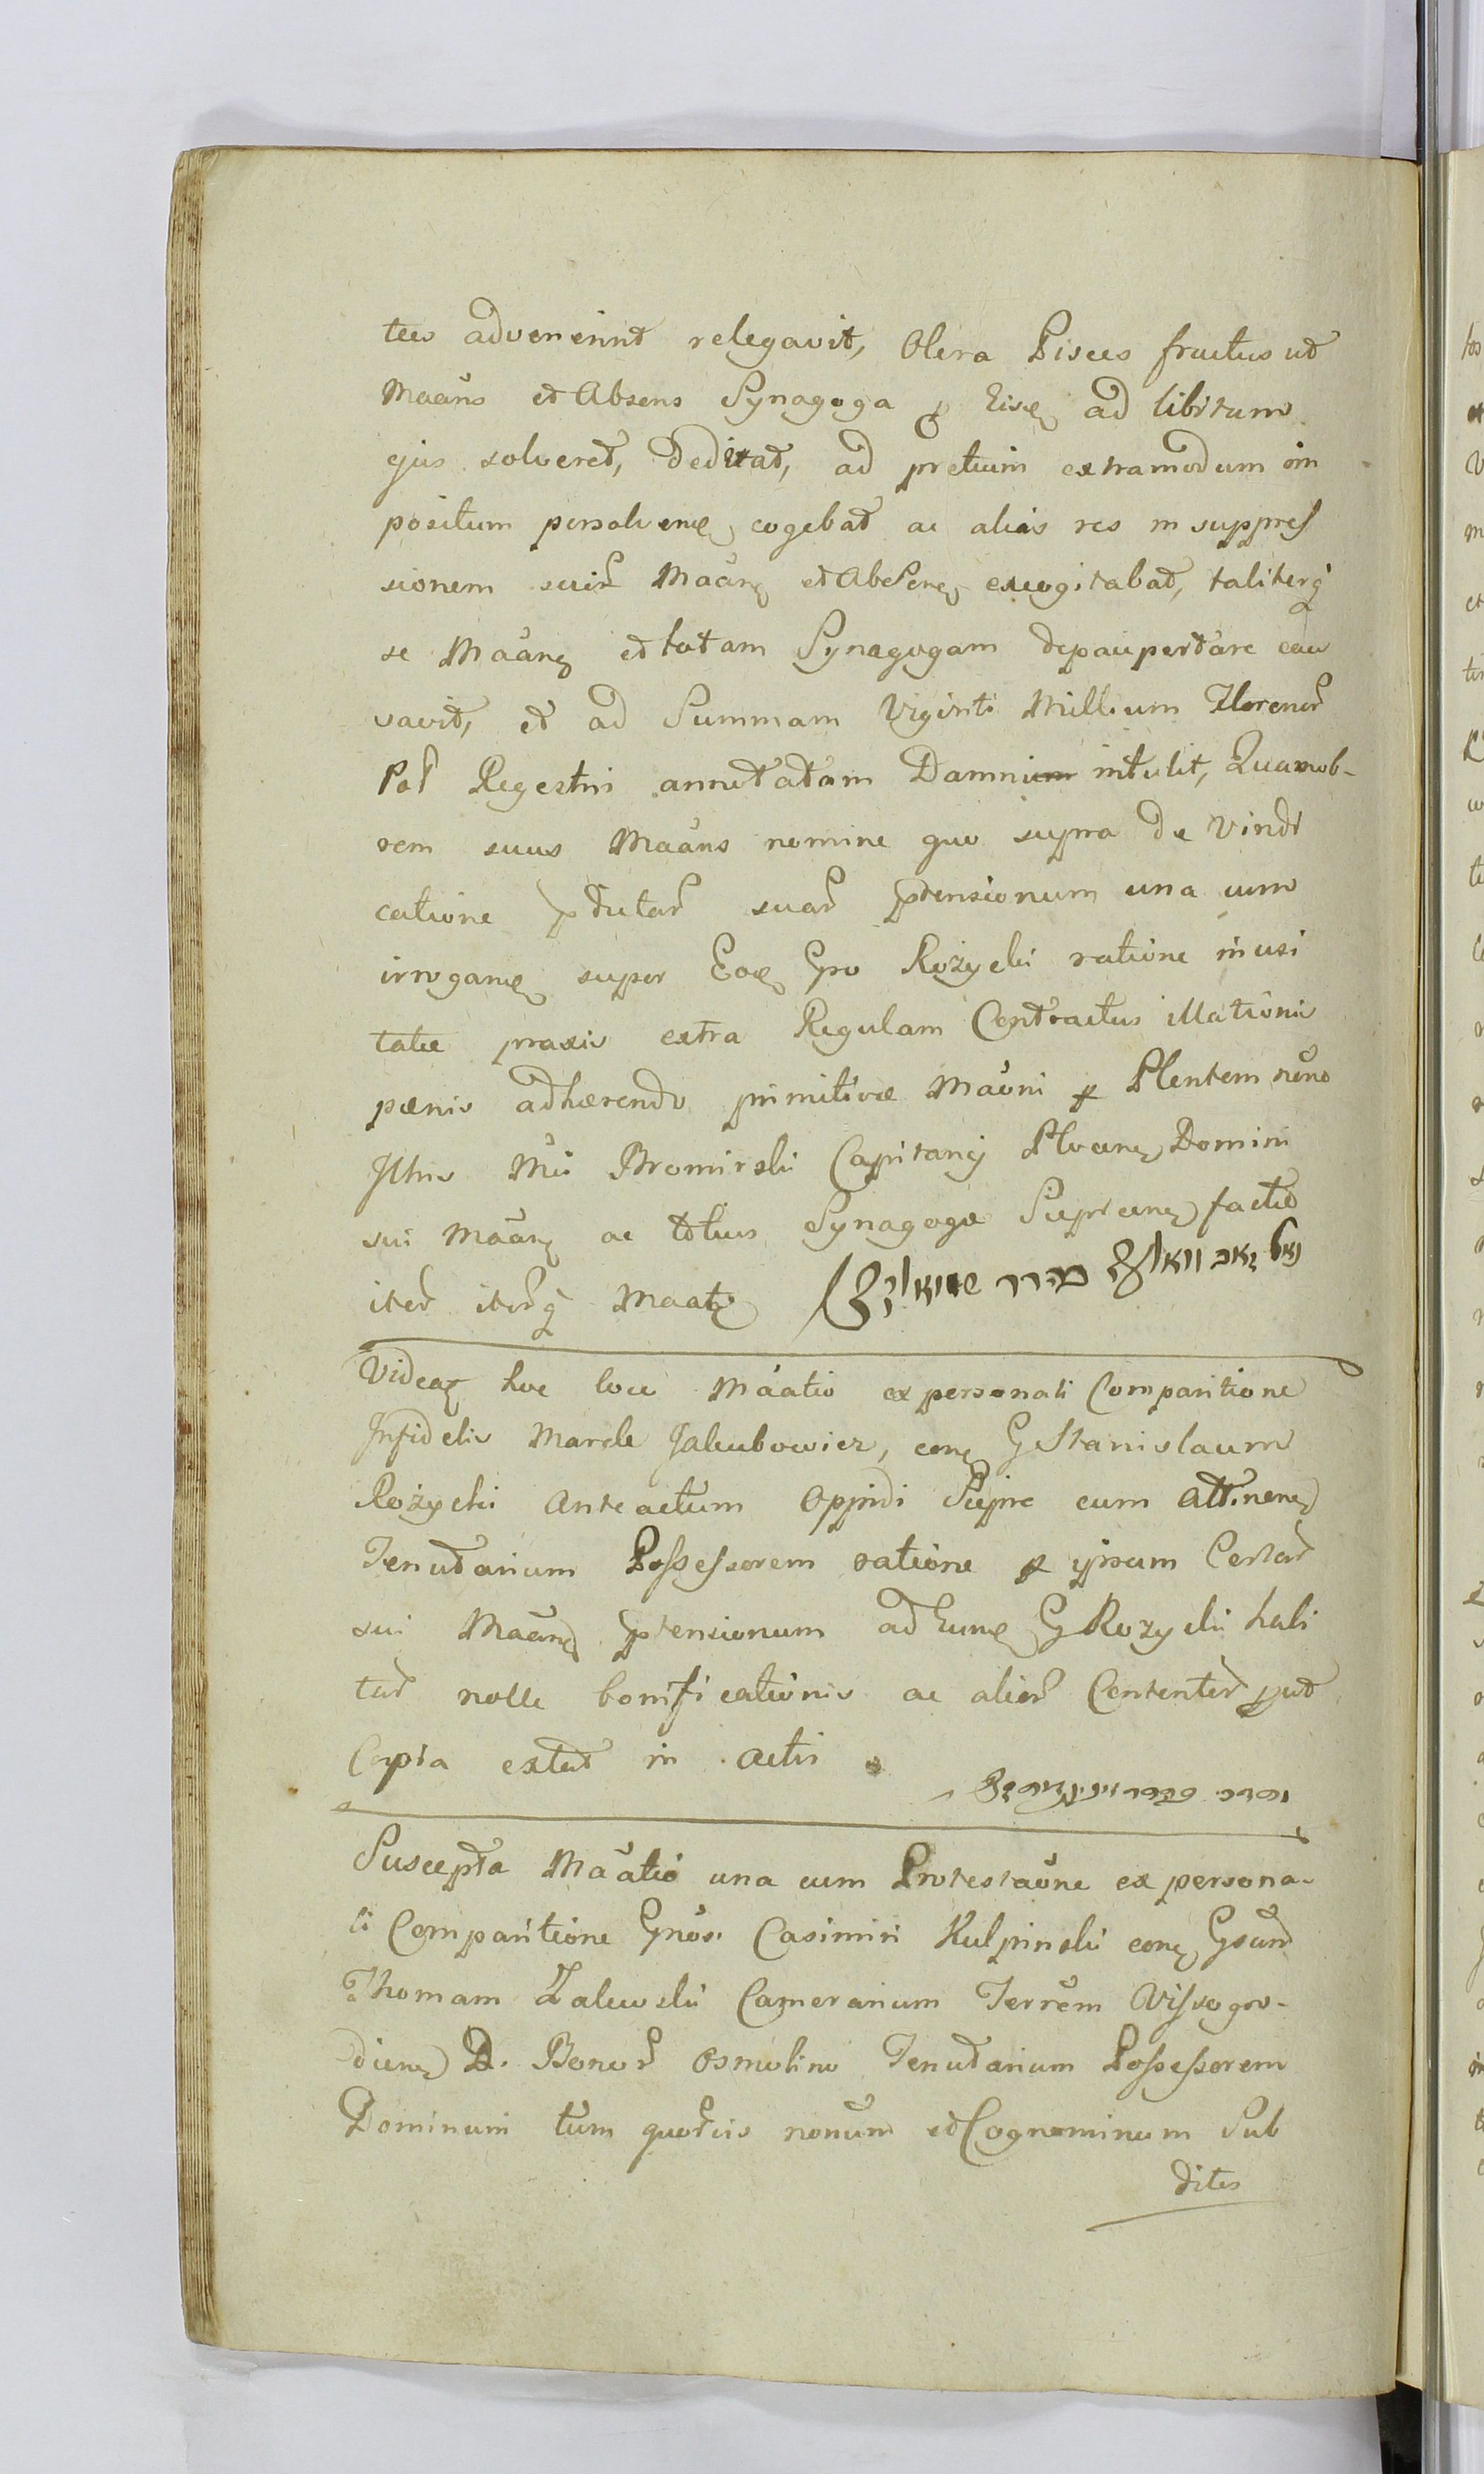 tus advenerint relegavit, Olera Pisces fructus ut
Maãns et Absens Synagoga p Eisę ad libitum
ejus solveret, deditat, ad pretium extramodum im
positum persolvenę cogebat ac alias res in suppres
sionem suir Maãnę et Absenę excogitabat, taliterq
se Maãnę et totam Synagogam depaupertare cau
savit, et ad Summam Viginti Millium Florenor
Pol Regestri annotatam Damni intulit, Quamob-
rem suus Maãns nomine quo supra de Vindi
catione suar ptensionum una cum
irroganę super Eoę Gro Rożycki ratione inusi
tatæ praxis extra Regulam Contractus illationis
pænis adhærendo primitivæ Maõni p Plentem
Illmi Mci Bromirski Capitanej Plocenę Domini
sui Maãnę ac totius Synagogæ Sieprcenę factæ
iter iterq Maatę
Videaę hoc loco Máatio ex personali Comparitione
Infidelis Marek Jakubowicz, conę G Stanislaum
Rożycki Anteactum Oppidi Siepre cum Attinenę
Tenutarium Possessorem ratione p ipsum Certar
sui Maãnę ptensionum ad Eumę G Rozycki habi
tar nolle bonificationis ac alior Contentor put
Copia extat in Actis
Suscepta Máatio una cum Protestaõne ex persona-
li Comparitione Gnõsi Casimiri Kulpinski conę Gsum
Thomam Zalewski Camerarium Terrem Vissogro-
dienę D. Bonor Osmolino Tenutarium Possessorem
Dominum tum quorvis nonum et Cognominum Sub
ditos